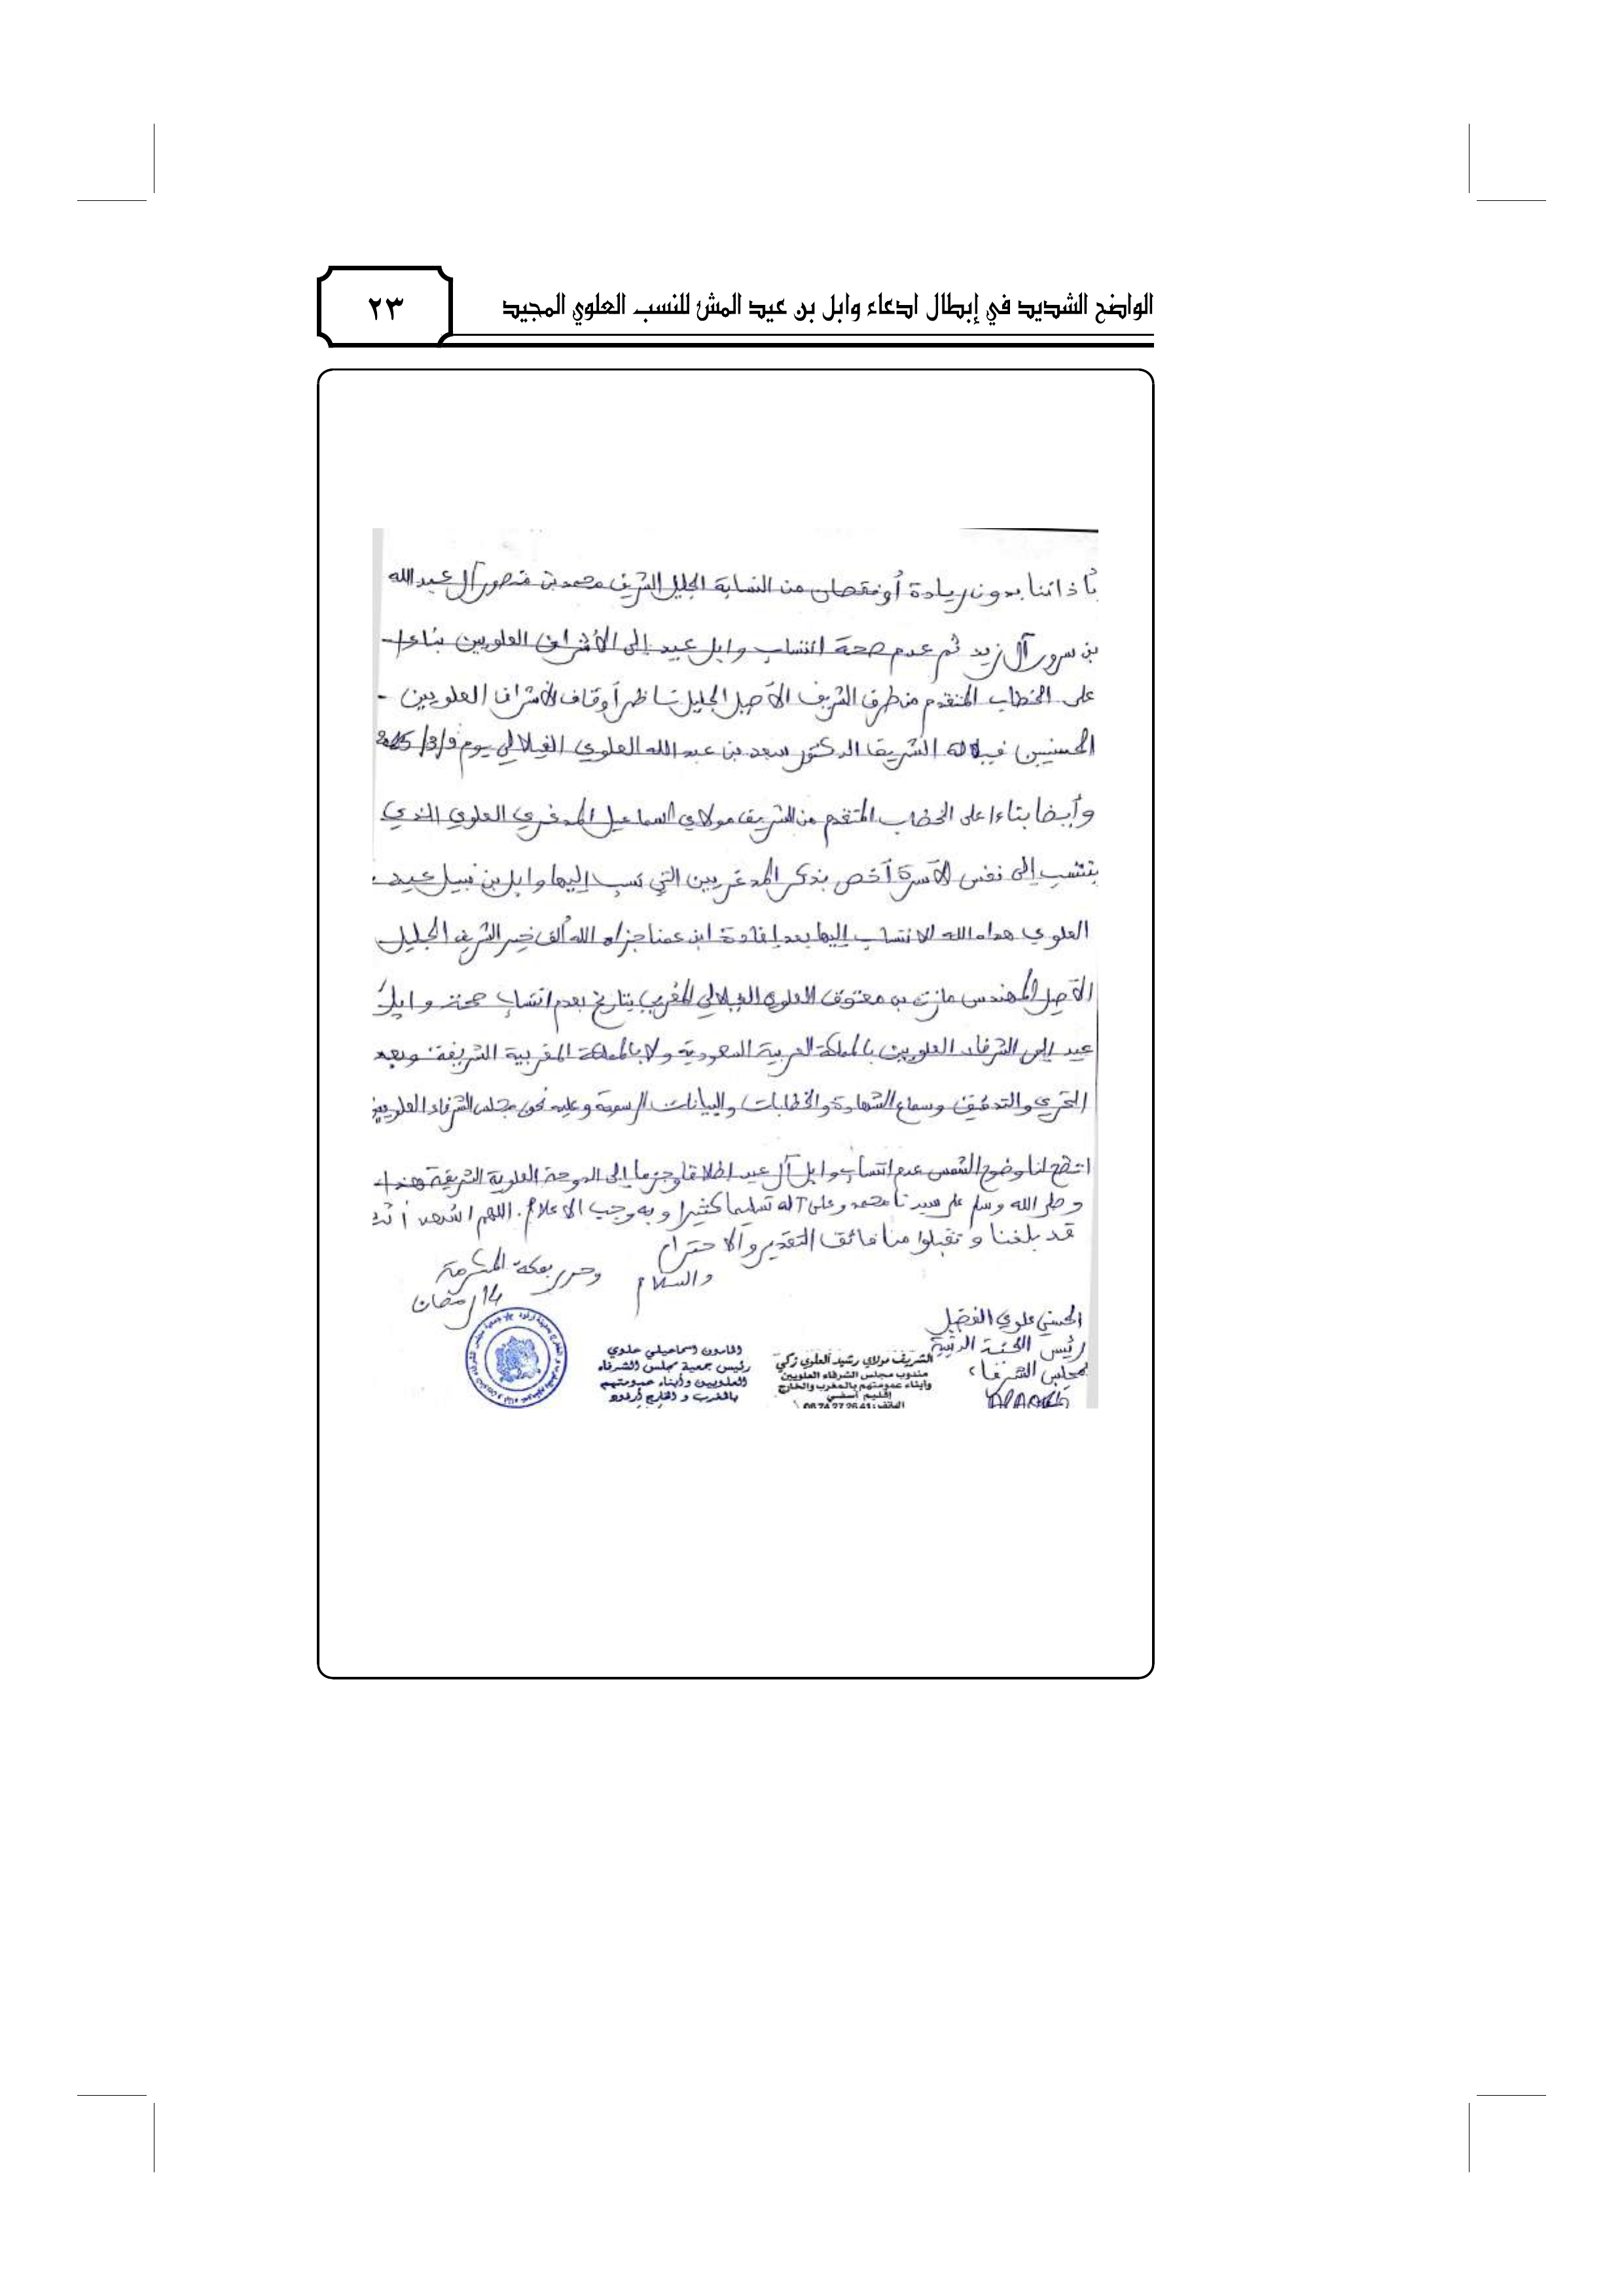 الواضح الشديد في إبطال ادعاء وابل بن عيد المش للنسب العلوي المجيد
٢٣
بدون زيادة أو نقصان من النسابة الجليل الشريف محمد بن منصور آل عبد الله
بن سرور آل زيد ثم عدم صحة انتساب وابل عيد إلى الأشراف العلويين بناءا
على الخطاب المتقدم من طرف الشريف الأصيل الجليل ناظر أوقاف الأشراف العلويين -
الحسنيين الشريف الدكتور سعد بن عبد الله العلوي الفيلالي يوم 9/3/2025
وأيضا بناءا على الخطاب المتقدم من الشريف مولاي اسماعيل المدغري العلوي الذي
ينتسب إلى نفس الأسرة أخص بذكر المدغريين التي نسب إليها وابل بن نبيل عيد
العلوي هداه الله الانتساب إليها بعد إفادة ابن عمنا جزاه الله ألف خير الشريف الجليل
الأصيل المهندس مازن بن معتوق العلوي المغربي بتاريخ بعدم انتساب وابل
عيد إلى الشرفاء العلويين بالمملكة العربية السعودية ولا بالمملكة المغربية الشريفة وبعد
التحري والتدقيق وسماع الشهادة والخطابات والبيانات الرسمية وعليه نحن مجلس الشرفاء العلويين
اتضح لنا وضوح الشمس عدم انتساب وابل آل عيد اطلاقا وجزما إلى الدوحة العلوية الشريفة هذا
وصلى الله وسلم على سيدنا محمد وعلى آله تسليما كثيرا وبه وجب الاعلام. اللهم اشهد أني
قد بلغنا وتقبلوا منا فائق التقدير والاحترام
والسلام وحرر بمكة المكرمة
14 رمضان
الحسني علوي الفضيل
رئيس اللجنة الدينية
لمجلس الشرفاء
الشريف مولاي رشيد العلوي زكي
مندوب مجلس الشرفاء العلويين
وأبناء عمومتهم بالمغرب والخارج
إقليم أسفي
الهاتف: 06 74 27 26 41
المامون اسماعيلي علوي
رئيس جمعية مجلس الشرفاء
العلويين وأبناء عمومتهم
بالمغرب و الخارج أرفود